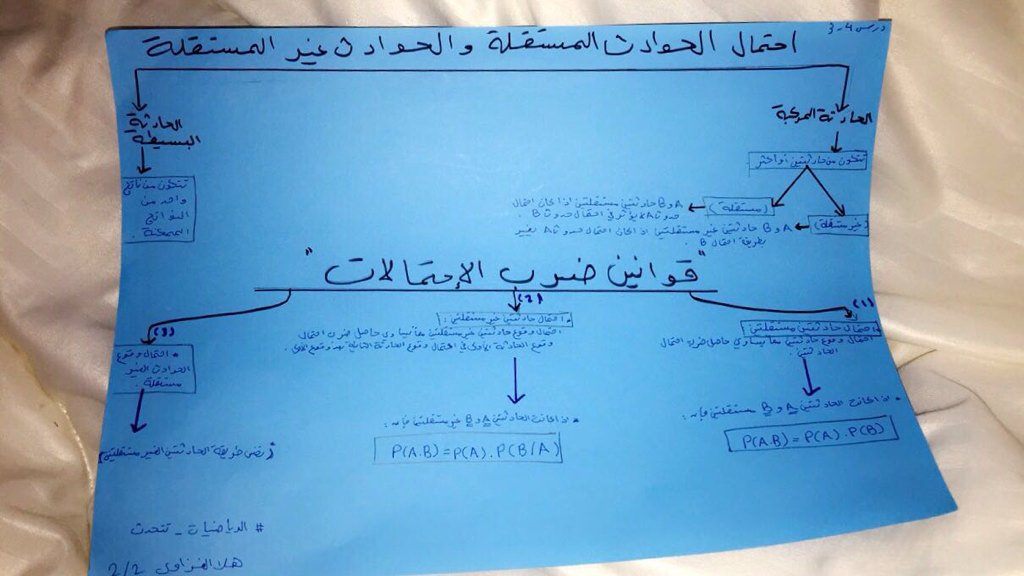 درس 4-3
احتمال الحوادث المستقلة والحوادث غير المستقلة
الحادثة المركبة
تتكون من حادثتين أو أكثر
(مستقلة)
A و B حادثتين مستقلتين اذا كان احتمال
حدوث A لا يؤثر في احتمال حدوث B .
(غير مستقلة)
A و B حادثتين غير مستقلتين اذا كان احتمال حدوث A يغير
بطريقة احتمال B .
الحادثة
البسيطة
تتكون من ناتج
واحد من
النواتج
الممكنة .
"قوانين ضرب الإحتمالات"
(1)
احتمال حادثتين مستقلتين :
احتمال وقوع حادثتين معاً يساوي حاصل ضرب احتمال
الحادثتين :
* اذا كانت الحادثتين A و B مستقلتين فإنه :
P(A.B) = P(A) . P(B)
(2)
* احتمال حادثتين غير مستقلتين :
احتمال وقوع حادثتين غير مستقلتين معاً يساوي حاصل ضرب احتمال
وقوع الحادثة الأولى في احتمال وقوع الحادثة الثانية بعد وقوع الأولى
* اذا كانت الحادثتين A و B غير مستقلتين فإنه :
P(A.B) = P(A) . P(B/A)
(3)
* احتمال وقوع
الحوادث الغير
مستقلة .
(نفس طريقة الحادثتين الغير مستقلتين)
# الرياضيات _ تتحدث
هلا 2/2